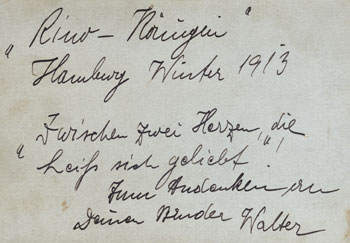 " Kino-Königin "
Hamburg Winter 1913
" Zwischen zwei Herzen, die
heiß sich geliebt. "
Zum Andenken an
Deinen Bruder Walter